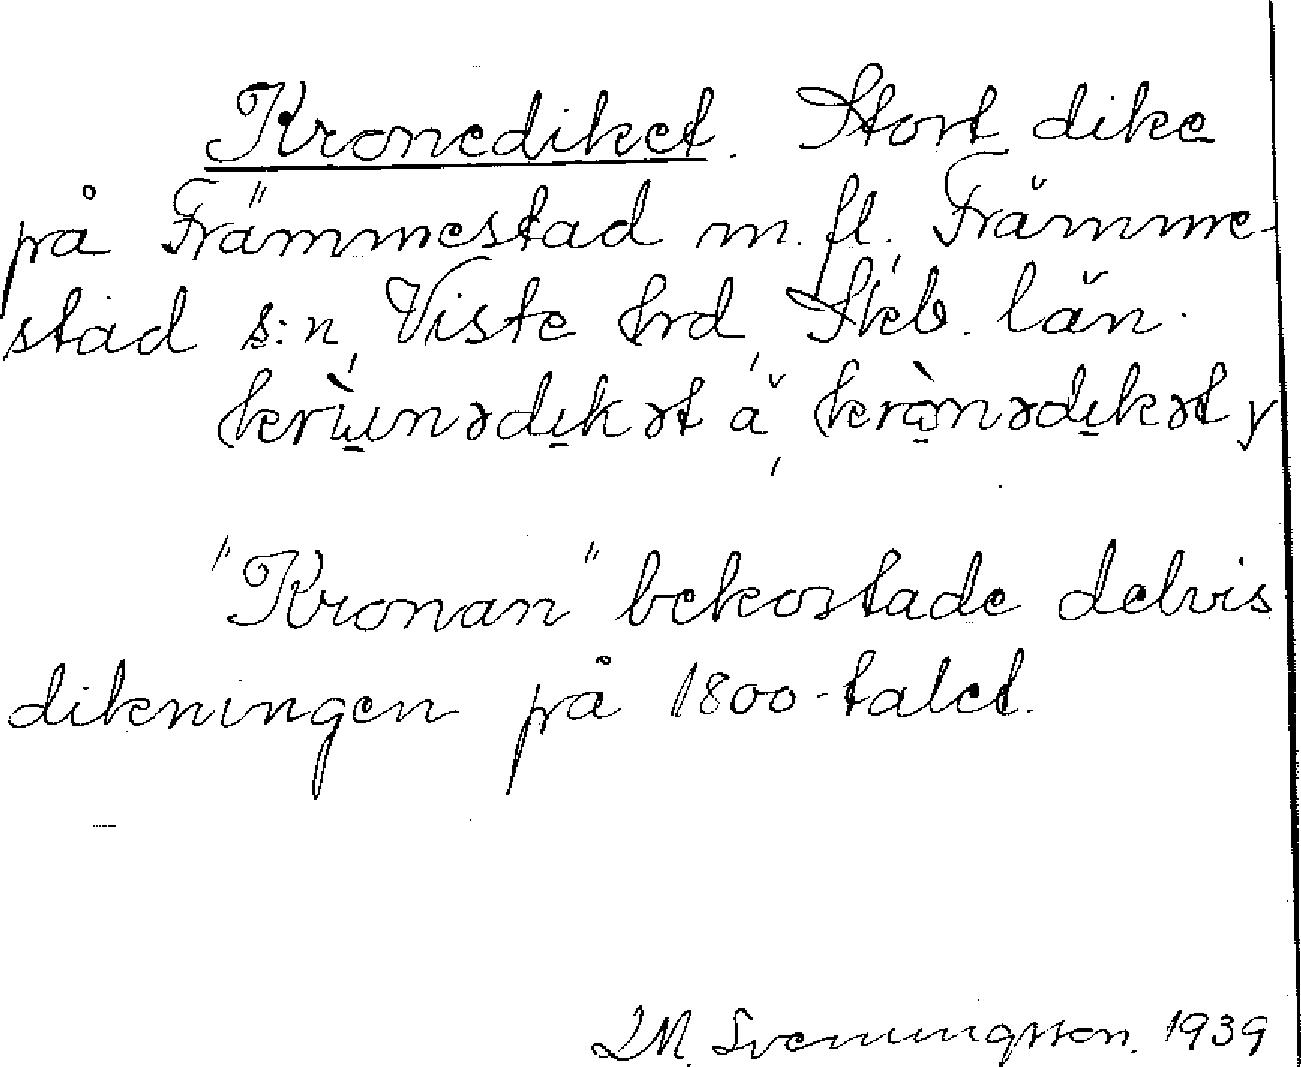 Kronediket. Stort dike
på Främmestad m. fl., Främme-
stad s:n, Viste hrd, Skb. län.
"Kronan" bekostade delvis
dikningen på 1800-talet.
Sveningsson. 1939